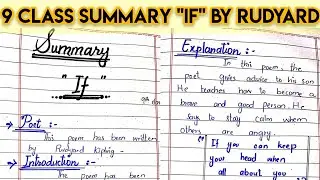 9 CLASS SUMMARY "IF" BY RUDYARD
Summary
" If "
→ Poet :-
This poem has been written
by Rudyard Kipling -
→ Introduction :-
The poem has been
Explanation :-
In this poem, the
poet gives advice to his son
He teaches how to become a
brave and good person. He
says to stay calm when
others are angry.
"If you can keep
your head when
all about you